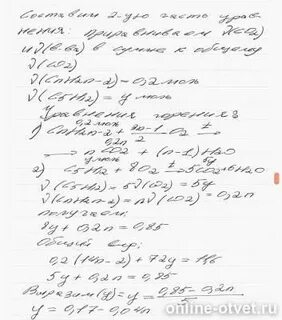 Составим 2-ую часть урав-
нения: приравниваем ν(CO2)
и ν(в-ва) в сумме к общему
ν(CO2)
ν(CnH2n-2) = 0,2 моль
ν(C5H12) = y моль
Уравнения горения:
0,2 моль
1) CnH2n-2 + 3n-1/2 O2 →
0,2n
→ nCO2 + (n-1)H2O
y моль 5y
2) C5H12 + 8O2 → 5CO2 + 6H2O
ν(C5H12) = 5ν(CO2) = 5y
ν(CnH2n-2) = nν(CO2) = 0,2n
получаем:
5y + 0,2n = 0,85
0,2(14n-2) + 72y =
5y + 0,2n = 0,85
Выразим (y) = y = 0,85-0,2n/5
y = 0,17 - 0,04n
online-otvet.ru